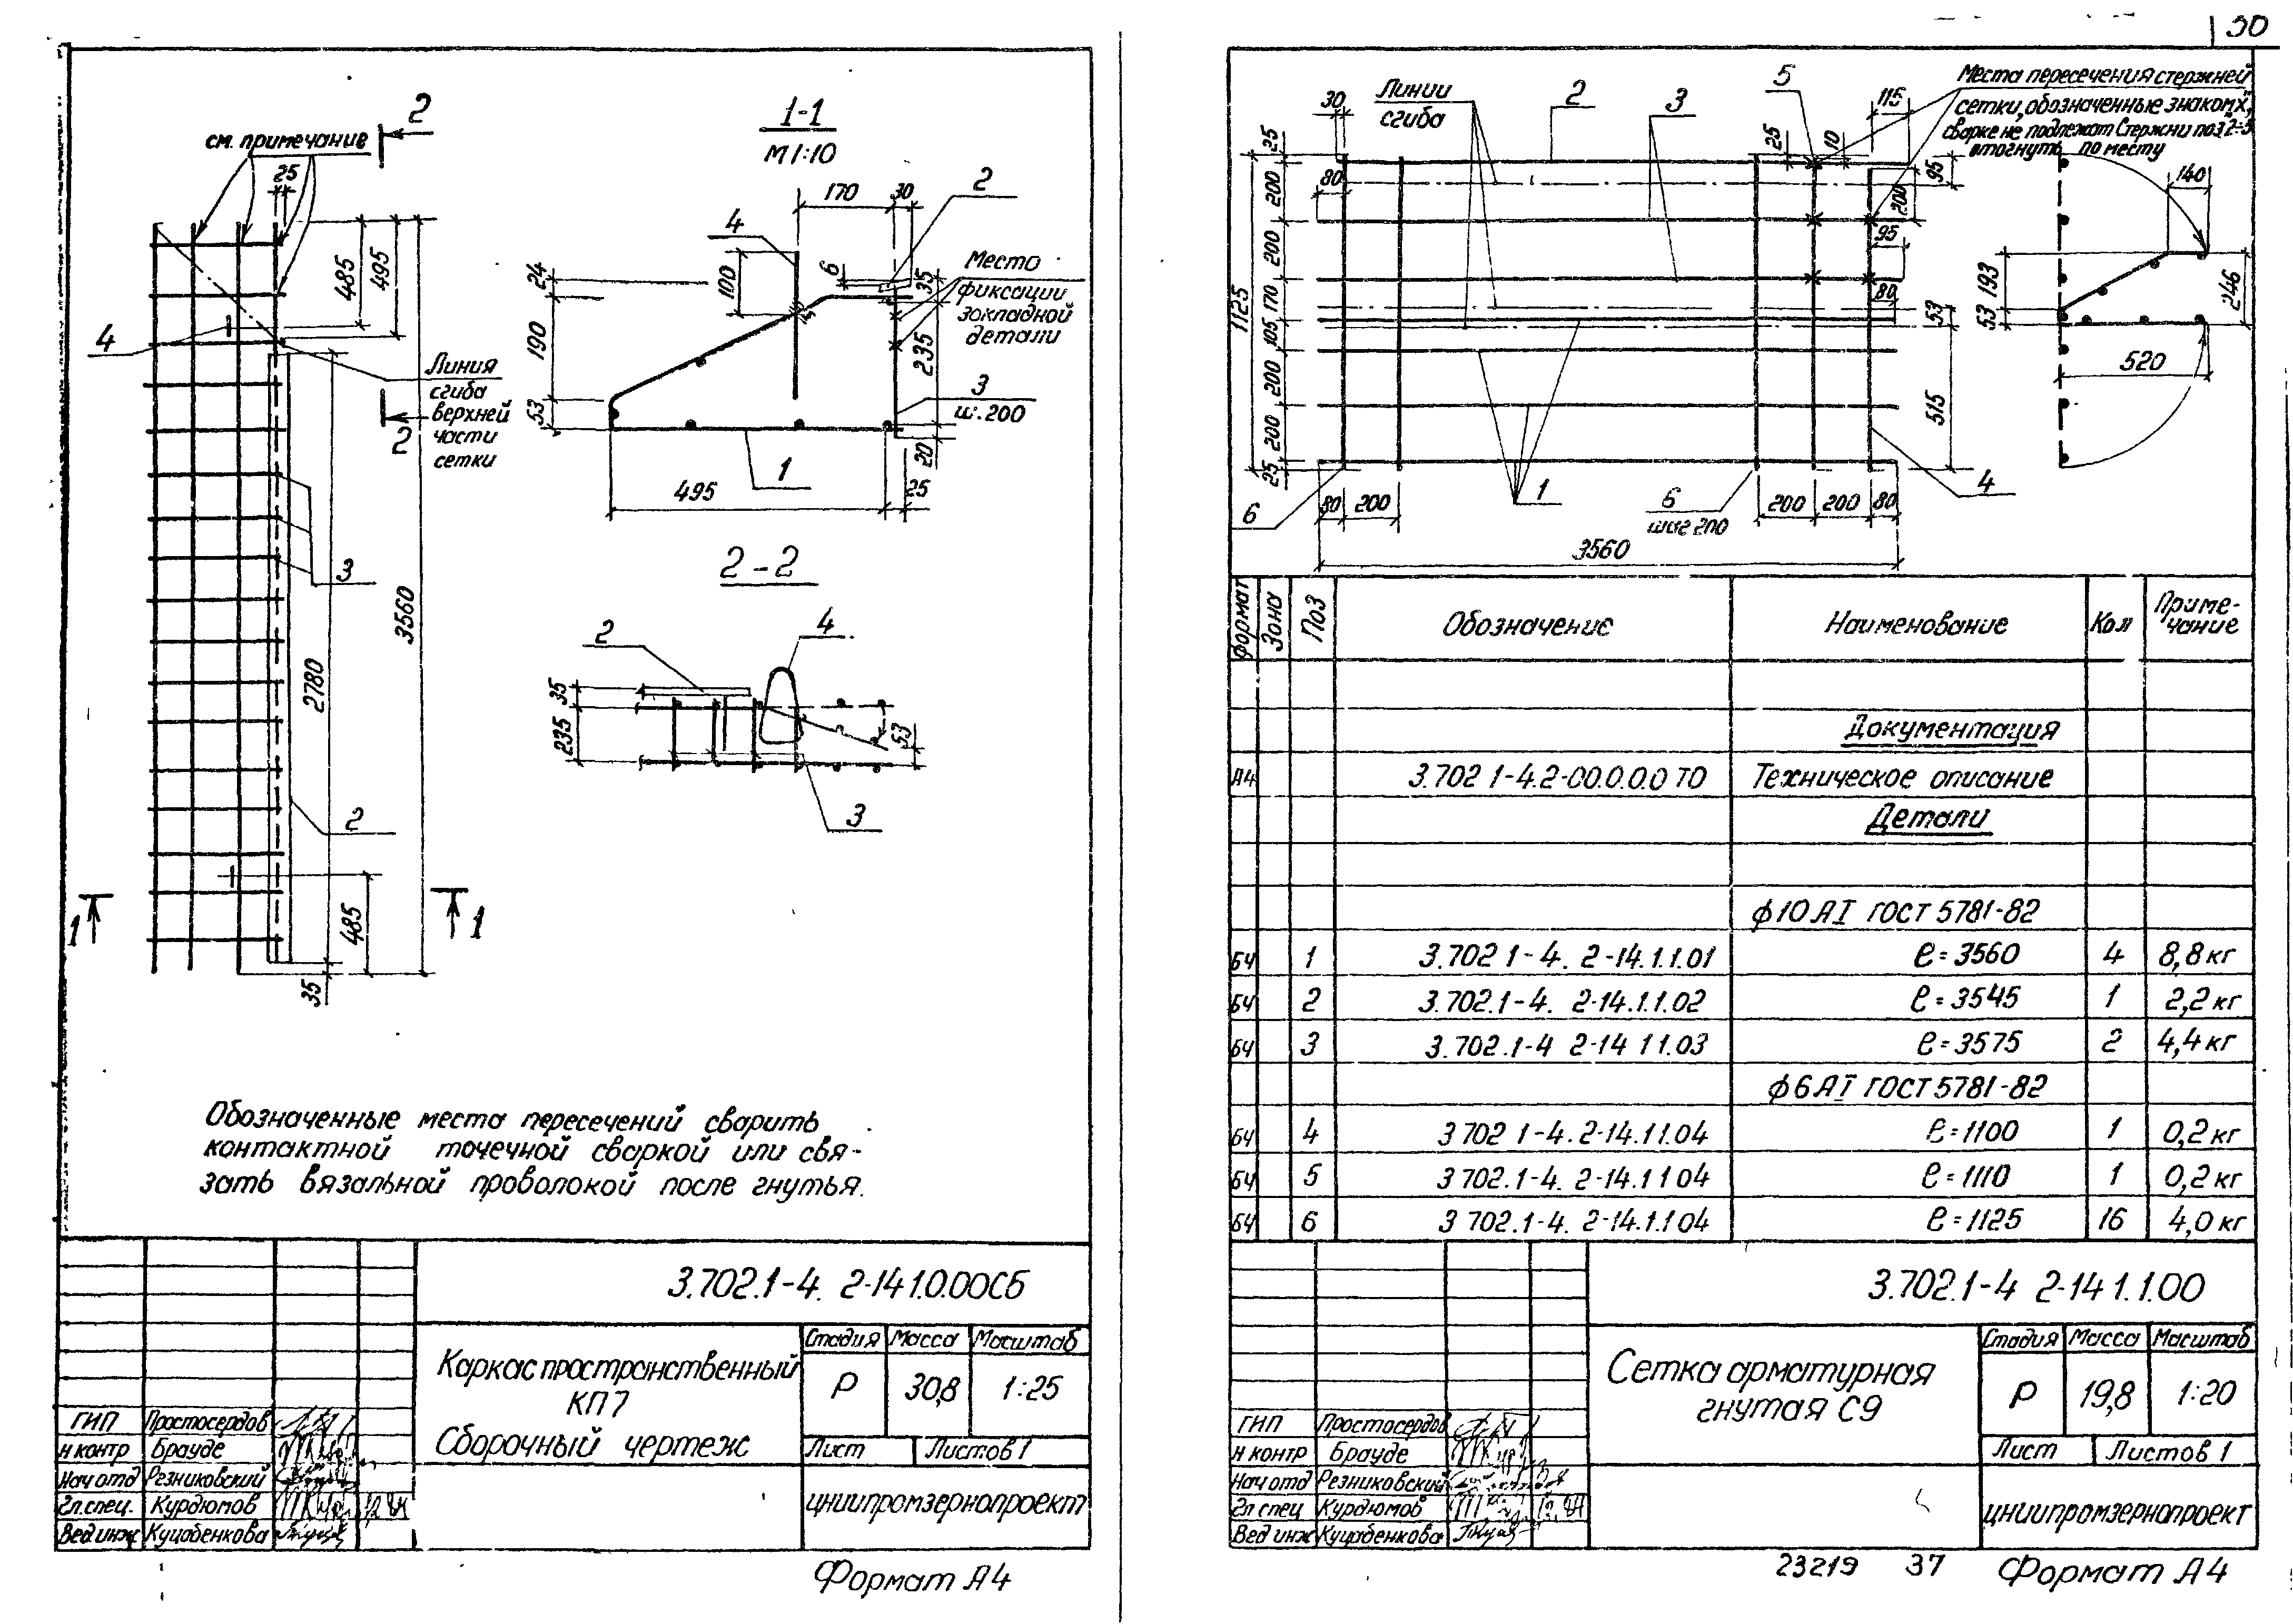 30
2
см. примечание
25
485
495
4
Линия
сгиба
верхней
части
сетки
2
3
2780
3560
2
1
1
485
35
1-1
М 1:10
170
30
2
4
100
6
35
Место
фиксации
закладной
детали
24
190
53
235
3
ш. 200
20
1
495
25
2-2
2
4
35
235
53
3
Обозначенные места пересечений сварить
контактной точечной сваркой или свя-
зать вязальной проволокой после гнутья.
3.702.1-4. 2-14 1.0.00СБ
Каркас пространственный
КП7
Сборочный чертеж
Стадия Масса Масштаб
Р 30,8 1:25
Лист Листов 1
ЦНИИПРОМЗЕРНОПРОЕКТ
ГИП Простосердов
н контр Брауде
Нач отд Резниковский
Гл.спец. Курдюмов
Вед инж Куцабенкова
Формат А4
Линии
сгиба
2
3
5
Места пересечения стержней
сетки, обозначенные знаком „х",
сварке не подлежат Стержни поз 2÷5
отогнуть по месту
30
115
25
25
10
95
80
200
200
95
200
170
80
53
105
200
515
200
25
1125
140
193
53
246
520
6
80
200
1
6
шаг 200
200
200
80
4
3560
Формат Зона Поз Обозначение Наименование Кол Приме-
чание
Документация
А4 3.702 1-4.2-00.0.0.0 ТО Техническое описание
Детали
ϕ10 АI ГОСТ 5781-82
БЧ 1 3.702 1-4. 2-14.1.1.01 ℓ=3560 4 8,8 кг
БЧ 2 3.702.1-4. 2-14.1.1.02 ℓ=3545 1 2,2 кг
БЧ 3 3.702.1-4 2-14 1 1.03 ℓ=3575 2 4,4 кг
ϕ6 АI ГОСТ 5781-82
БЧ 4 3 702 1-4. 2-14.1 1.04 ℓ=1100 1 0,2 кг
БЧ 5 3 702.1-4. 2-14.1 1 04 ℓ=1110 1 0,2 кг
БЧ 6 3 702.1-4. 2-14.1.1 04 ℓ=1125 16 4,0 кг
3.702.1-4 2-14 1.1.00
Сетка арматурная
гнутая С9
Стадия Масса Масштаб
Р 19,8 1:20
Лист Листов 1
ЦНИИПРОМЗЕРНОПРОЕКТ
ГИП Простосердов
н контр Брауде
Нач отд Резниковский
Гл спец Курдюмов
Вед инж Куцабенкова
23219 37 Формат А4